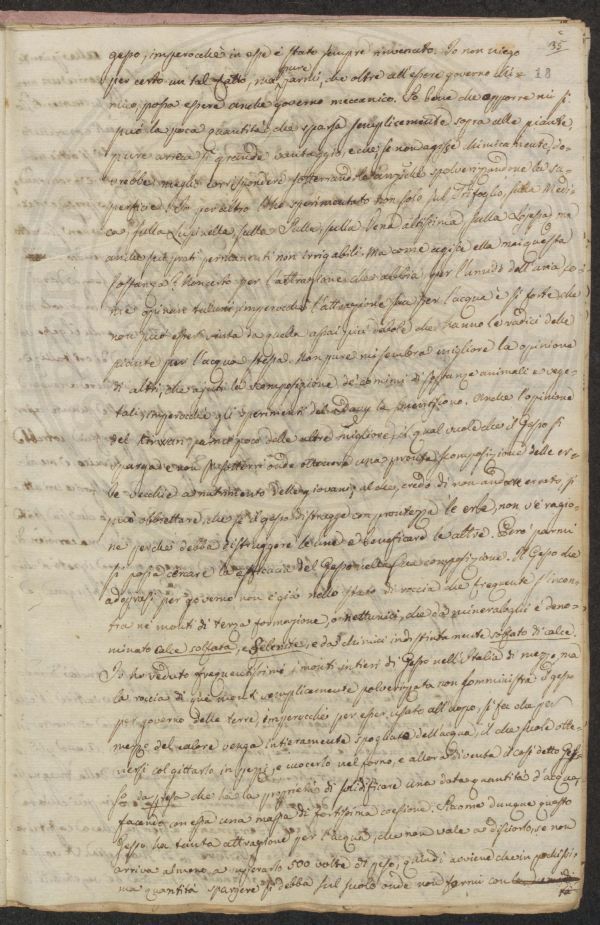 35
18
gesso, imperocchè in esse è stato sempre rinvenuto. Io non niego
per certo un tal fatto, ma pure parmi, che oltre all'essere governo chi-
mico, possa essere anche governo meccanico. So bene che opporre mi si
può la poca quantità, che sparsa semplicemente sopra alle piante
pure arreca sì grande vantaggio, e che se non agisse chimicamente do-
vrebbe meglio corrispondere sotterrandola anzichè spolverizzandone la su-
perficie. Io per altro l'ho sperimentato non solo sul Trifoglio, sulla Medi-
ca, sulla Lupinella, sulla Sulla, sulla Vena altissima, sulla ma
anche sui prati permanenti non irrigabili. Ma come agisce ella mai questa
sostanza? Non certo per l'attrazione che abbia per l'umido dell'aria, co-
me opinan taluni, imperocchè l'attrazione sua per l'acqua è sì forte che
non può esser vinta da quella assai più debole che hanno le radici delle
piante per l'acqua stessa. Non pure mi sembra migliore la opinione
di altri, che ajuti la scomposizione de' concimi di sostanze animali e vege-
tali, imperocchè gli sperimenti del Davy la smentiscono. Anche l'opinione
del Kirwan parmi poco delle altre migliore, il qual vuole che il Gesso si
sparga e non sotterri onde ottenere una pronta scomposizione delle er-
be vecchie a nutrimento delle giovani; al che, credo di non andare errato, si
può obbiettare, che se il gesso distrugge con prontezza le erbe, non v'è ragio-
ne perchè debba distruggere le une e beneficare le altre. Però parmi
si possa cercare la efficacia del Gesso nella sua composizione. Il Gesso che
adoprasi per governo non è già nello stato di roccia che frequente s'incon-
tra ne' monti di terza formazione, o nettunici, che da' mineralogisti è deno-
minato calce solfata, e Selenite, e da' chimici indistintamente solfato di calce.
Io ho veduto frequentissimi i monti intieri di Gesso nell'Italia di mezzo, ma
la roccia di que' monti semplicemente polverizzata non somministra il gesso
per governo delle terre, imperocchè per esser usato all'uopo, si fa che per
mezzo del calore venga intieramente spogliato dell'acqua, il che suole otte-
nersi col gittarlo in pezzi, e cuocerlo nel forno, e allora diventa il così detto Ges-
so da presa che ha la proprietà di solidificare una data quantità d'acqua,
facendo con essa una massa di fortissima coesione. Siccome dunque questo
Gesso ha tanta attrazione per l'acqua, che non vale a disciorlo, se non
arriva almeno a superarlo 500 volte di peso, quindi avviene che in pochissi-
ma quantità spargere si debba sul suolo onde non formi con